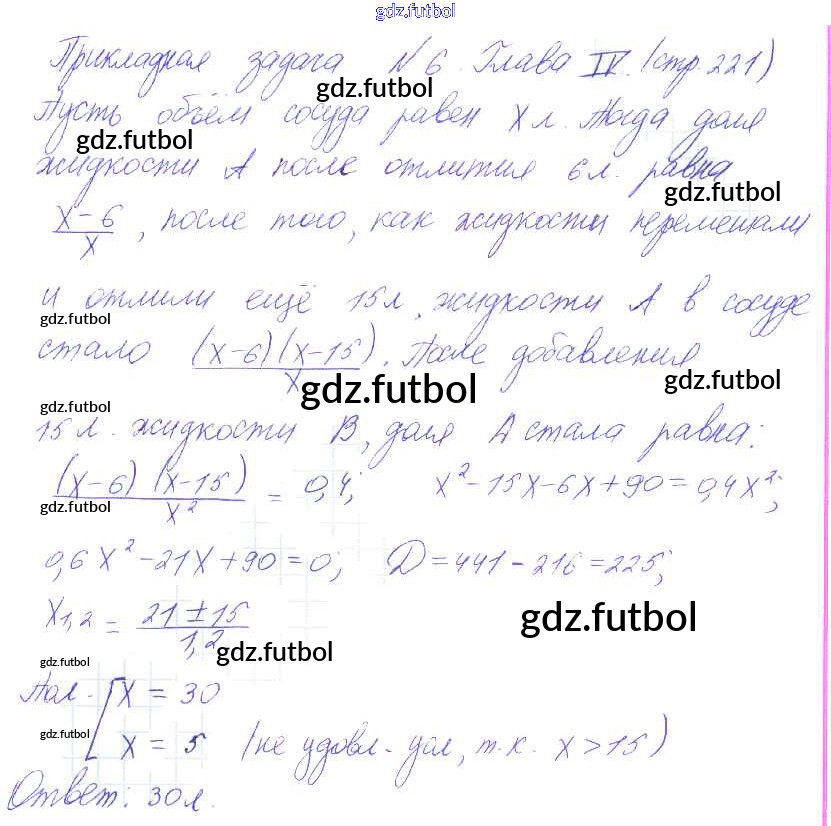 gdz.futbol
Прикладная задача N 6. Глава IV. (стр. 221)
gdz.futbol
Пусть объём сосуда равен x л. Тогда доля
gdz.futbol
жидкости A после отлития 6 л. равна
gdz.futbol
(x-6)/x, после того, как жидкости перемешали
и отлили ещё 15 л, жидкости A в сосуде
gdz.futbol
стало (x-6)(x-15)/x. После добавления
gdz.futbol gdz.futbol
gdz.futbol
15 л. жидкости B, доля A стала равна:
(x-6)(x-15)/x² = 0,4; x²-15x-6x+90=0,4x²;
gdz.futbol
0,6x²-21x+90=0; D=441-216=225;
x1,2 = (21±15)/1,2
gdz.futbol
gdz.futbol
gdz.futbol
Пол. [x = 30
gdz.futbol
x = 5 (не удовл. усл, т.к. x>15)
Ответ: 30 л.